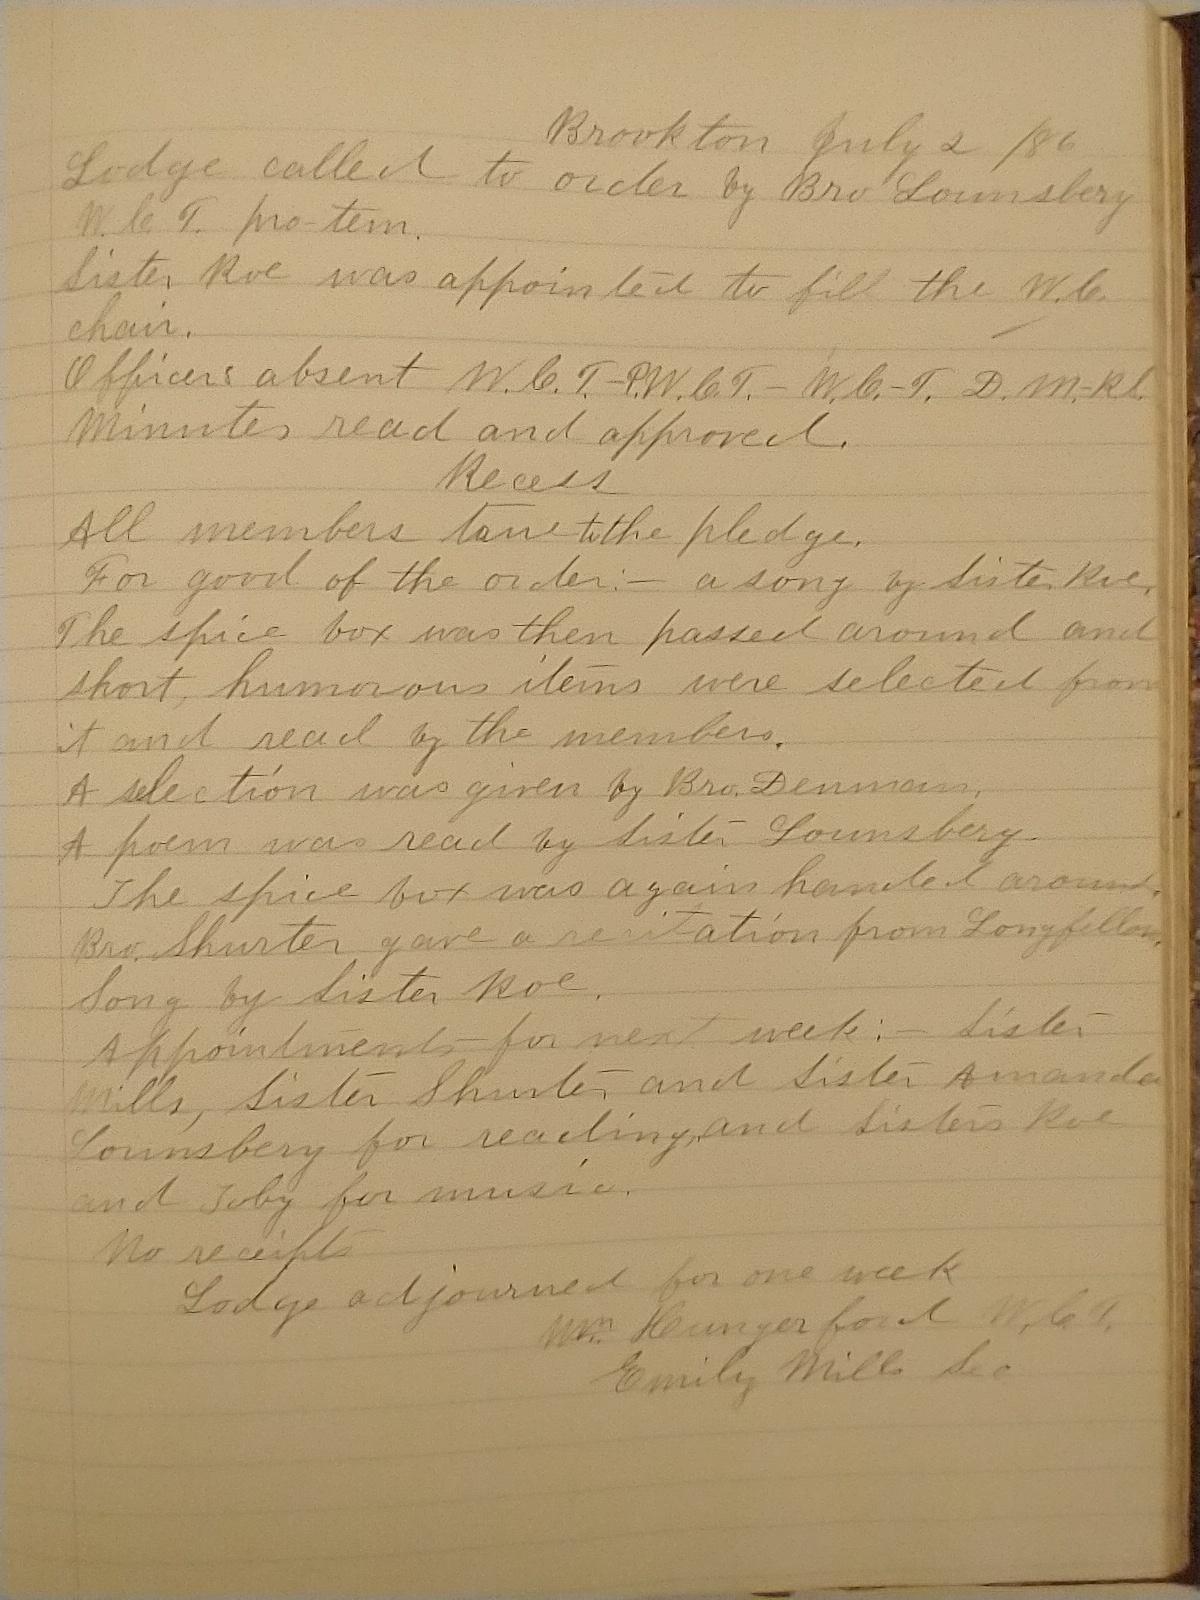 Brookton July 2 /86
Lodge called to order by Bro Lounsbery
W. C. T. pro-tem.
Sister Roe was appointed to fill the W. C.
chair.
Officers absent W. C. T. - P. W. C. T. - W. C. - T. D. M. -
Minutes read and approved.
Recess
All members true to the pledge.
For good of the order: - a song by Sister Roe.
The spice box was then passed around and
short, humorous items were selected from
it and read by the members.
A selection was given by Bro. Denman.
A poem was read by Sister Lounsbery.
The spice box was again handed around.
Bro. Shurter gave a recitation from Longfellow.
Song by Sister Roe.
Appointments for next week: - Sister
Mills, Sister Shurter and Sister Amanda
Lounsbery for reading, and Sisters Roe
and Toby for music.
No receipts
Lodge adjourned for one week
Wm. Hungerford W. C. T.
Emily Mills Sec